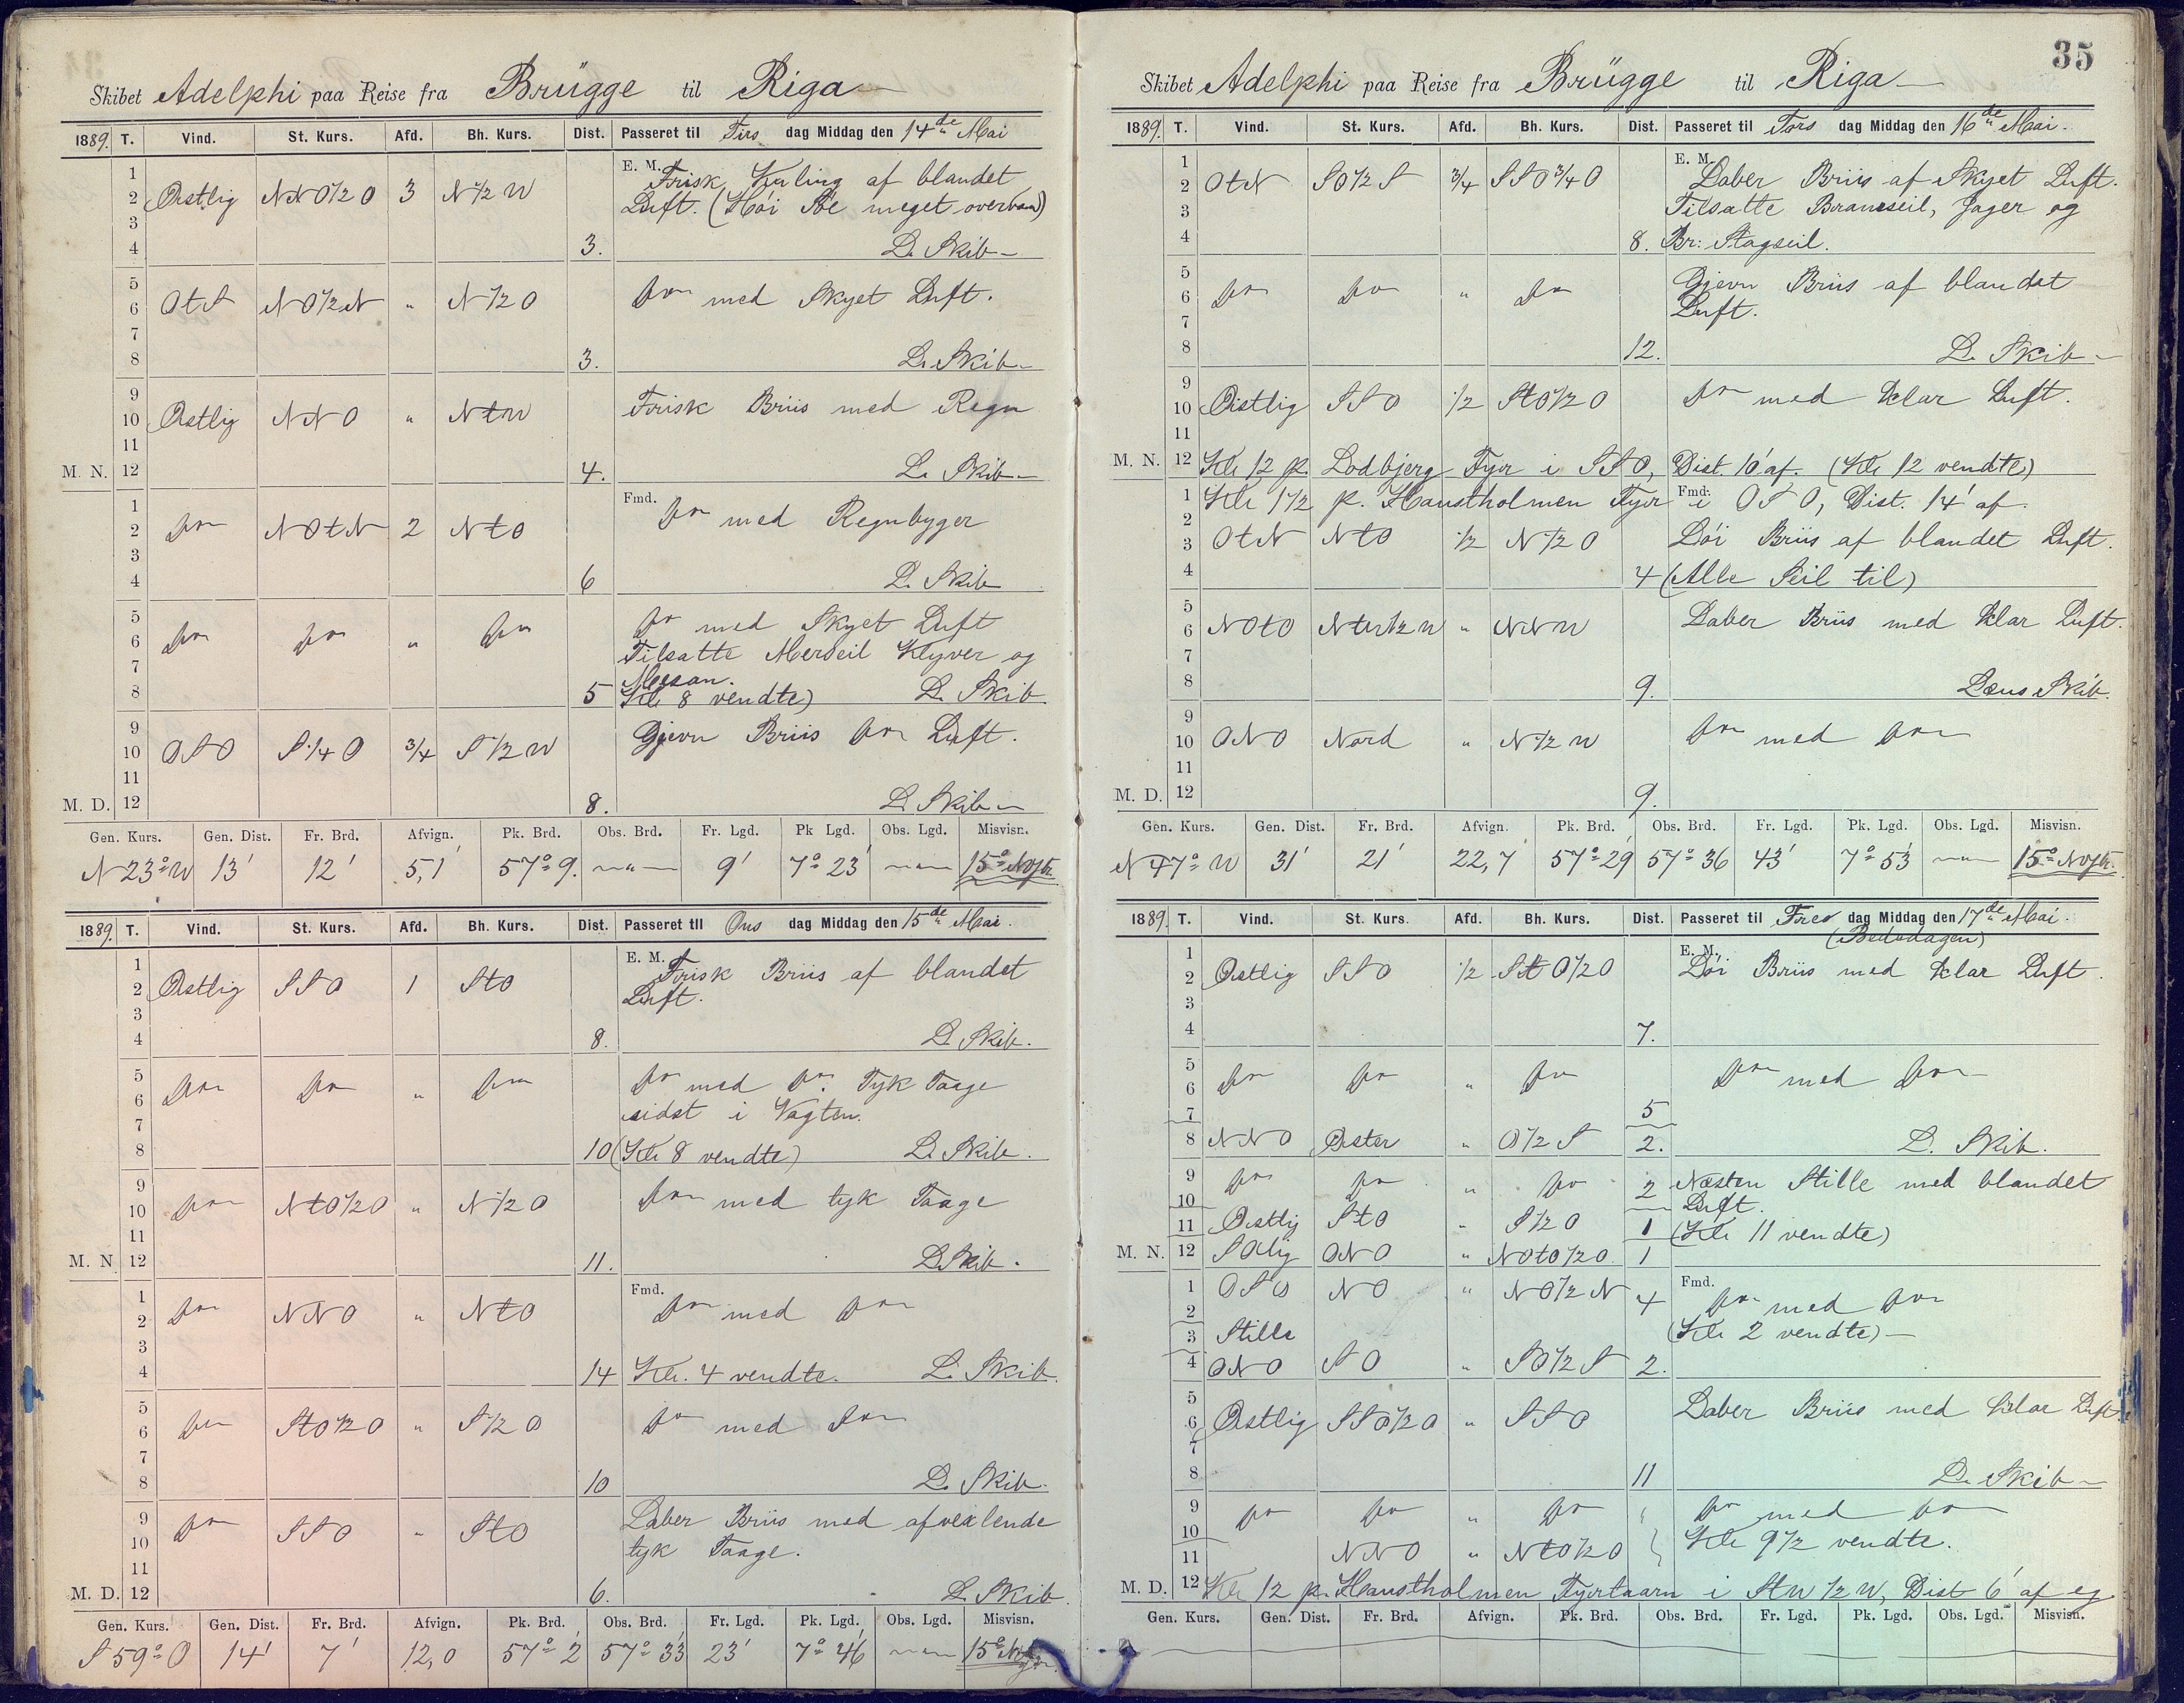 Skibet Adelphi paa Reise fra Brügge til Riga
1889. T. Vind. St. Kurs. Afd. Bh. Kurs. Dist. Passeret til Tirs dag Middag den 14de Mai
1
2 Østlig NNO½O 3 N½W E. M. Frisk Kuling af blandet
3 Luft. (Høi Sø meget overvand)
4 3. L. Skib
5
6 OtS NO½N " N½O Do med Skyet Luft.
7
8 3. L. Skib
9
10 Østlig NNO " NtW Frisk Briis med Regn
11
M. N. 12 4. L. Skib
1 Fmd.
2 Do NOtN 2 NtO Do med Regnbyger
3
4 6 L. Skib
5
6 Do Do " Do Do med Skyet Luft
7 Tilsatte Merseil Klyver og
Mesan.
8 5 Kl. 8 vendte) L. Skib
9
10 OSO S¼O ¾ S½W Gjevn Briis Do Luft.
11
M. D. 12 8. L. Skib
Gen. Kurs. Gen. Dist. Fr. Brd. Afvign. Pk. Brd. Obs. Brd. Fr. Lgd. Pk Lgd. Obs. Lgd. Misvisn.
N 23° W 13' 12' 5,1 57° 9. " 9' 7° 23' " 15° NVstr.
1889. T. Vind. St. Kurs. Afd. Bh. Kurs. Dist. Passeret til Ons dag Middag den 15de Mai.
1 E. M.
2 Østlig SSO 1 StO Frisk Briis af blandet
3 Luft.
4 8. L. Skib.
5
6 Do Do " Do Do med Do. Tyk Taage
7 sidst i Vagten.
8 10 (Kl. 8 vendte) L. Skib.
9
10 Do NtO½O " N½O Do med tyk Taage
11
M. N 12 11. L. Skib.
1 Fmd.
2 Do NNO " NtO Do med Do
3
4 14 Kl. 4 vendte. L. Skib.
5
6 Do StO½O " S½O Do med Do
7
8 10 L. Skib.
9
10 Do SSO " StO Laber Briis med afvexlende
11 tyk Taage.
M. D. 12 6. L. Skib.
Gen. Kurs. Gen. Dist. Fr. Brd. Afvign. Pk. Brd. Obs. Brd. Fr. Lgd. Pk. Lgd. Obs. Lgd. Misvisn.
S 59° O 14' 7' 12,0 57° 2' 57° 33' 23' 7° 46' " 15°
35
Skibet Adelphi paa Reise fra Brügge til Riga
1889. T. Vind. St. Kurs. Afd. Bh. Kurs. Dist. Passeret til Tors dag Middag den 16de Mai.
1 E. M.
2 OtN SO½S ¾ SSO¾O Laber Briis af Skyet Luft.
3 Tilsatte Bramseil, Jager og
4 8. Br: Stagseil.
5
6 Do Do " Do Gjevn Briis af blandet
7 Luft.
8 12. L. Skib
9
10 Østlig SSO ½ StO½O Do med klar Luft.
11
M. N. 12 Kl. 12 p. Lodbjerg Fyr i SSO, Dist. 10' af. (Kl. 12 vendte)
1 Kl. 1½ p. Hanstholmen Fyr Fmd. i OSO, Dist. 14' af.
2
3 OtN NtO ½ N½O Løi Briis af blandet Luft.
4 4 (Alle Seil til)
5
6 NOtO NtW½W " NNW Laber Briis med klar Luft.
7
8 9. Læns Skib.
9
10 ONO Nord " N½W Do med Do
11
M. D. 12 9.
Gen. Kurs. Gen. Dist. Fr. Brd. Afvign. Pk. Brd. Obs. Brd. Fr. Lgd. Pk. Lgd. Obs. Lgd. Misvisn.
N 47° W 31' 21' 22,7 57° 29' 57° 36 43' 7° 53' " 15° NVstr.
1889. T. Vind. St. Kurs. Afd. Bh. Kurs. Dist. Passeret til Fre dag Middag den 17de Mai.
(Bededagen)
1 E. M.
2 Østlig SSO ½ StO½O Løi Briis med klar Luft.
3
4 7.
5
6 Do Do " Do Do med Do
7 5
8 NNO Øster " O½S 2. L. Skib.
9 Do Do " Do 2 Næsten Stille med blandet
10 Luft.
11 Østlig StO " S½O 1 (Kl. 11 vendte)
M. N. 12 SOlig ONO " NOtO½O 1
1 OSO NO " NO½N 4 Fmd. Do med Do
2 (Kl. 2 vendte)
3 Stille
4 ONO SO " SO½S 2.
5
6 Østlig SSO½O " SSO Laber Briis med klar Luft.
7
8 11 L. Skib
9 Do Do " Do " Do med Do
10 Kl. 9½ vendte.
11 NNO " NtO½O
M. D. 12 Kl. 12 p. Hanstholmen Fyrtaarn i StW½W, Dist 6' af og
Gen. Kurs. Gen. Dist. Fr. Brd. Afvign. Pk. Brd. Obs. Brd. Fr. Lgd. Pk. Lgd. Obs. Lgd. Misvisn.